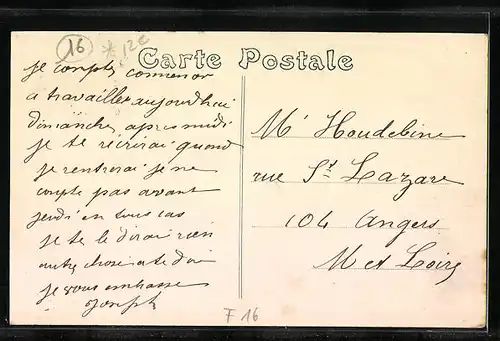 16
* 12e
Carte Postale
je compte commencer
a travailler aujourdhui
dimanche apres midi
je te récrirai quand
je rentrerai je ne
compte pas avant
jeudi en tous cas
je te le dirai rien
autre chose a te dire
je vous embrasse
Joseph
Mr Houdebine
rue St Lazare
104 Angers
M et Loire
F 16